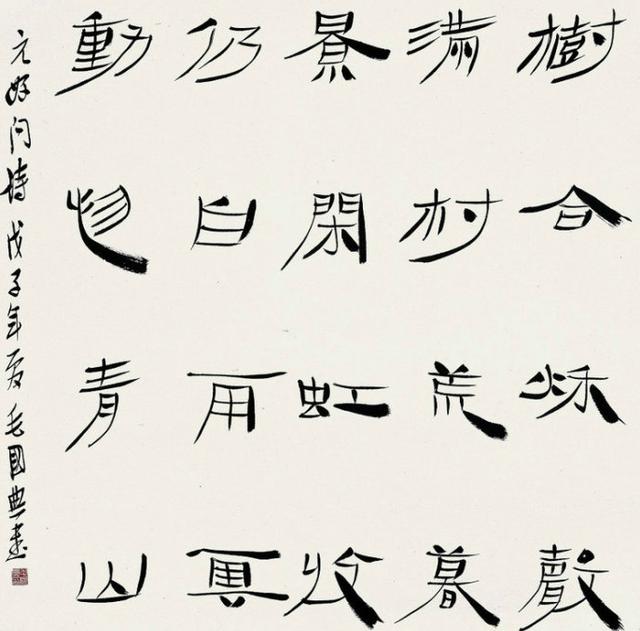 樹合秋聲
滿村荒暮
景閑虹收
仍白雨雲
動忽青山
元好问詩戊子年夏毛國典書